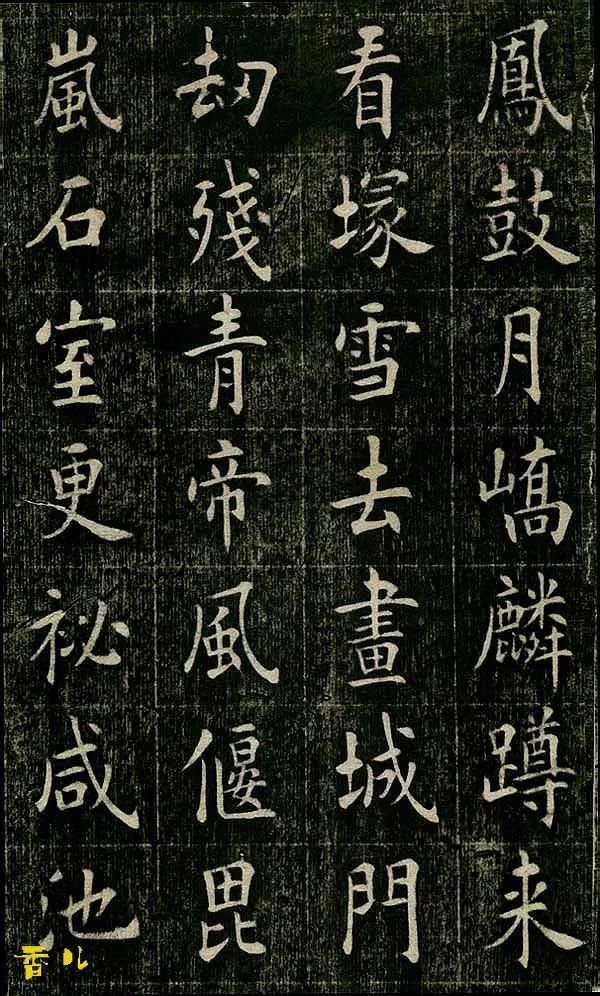 鳳鼓月嶠麟蹲来
看塚雪去畫城門
劫殘青帝風偃毘
嵐石室更祕咸池
香儿